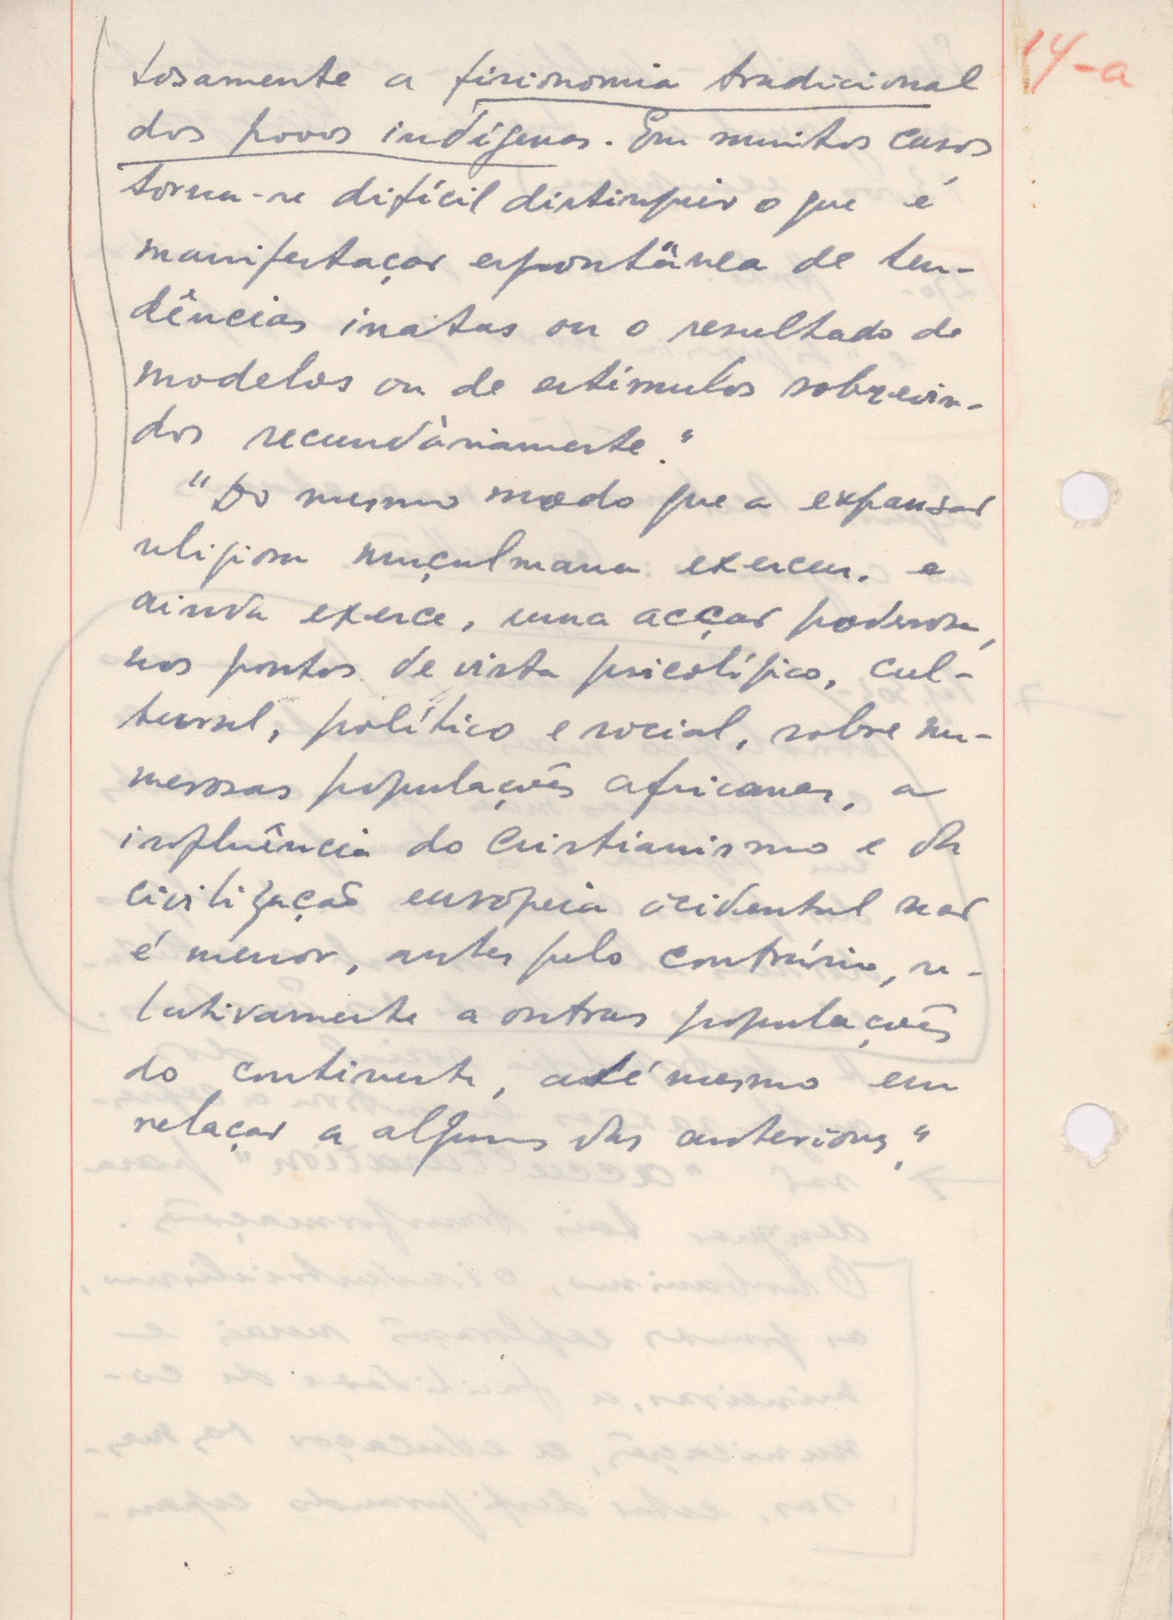 14-a
tosamente a fisionomia tradicional
dos povos indígenas. Em muitos casos
torna-se difícil distinguir o que é
manifestação espontânea de ten-
dências inatas ou o resultado de
modelos ou de estímulos sobrevin-
dos secundàriamente."
"Do mesmo modo que a expansão
religiosa muçulmana exerceu, e
ainda exerce, uma acção poderosa,
nos pontos de vista psicológico, cul-
tural, político e social, sobre nu-
merosas populações africanas, a
influência do Cristianismo e da
civilização europeia ocidental não
é menor, antes pelo contrário, re-
lativamente a outras populações
do continente, até mesmo em
relação a algumas das anteriores."